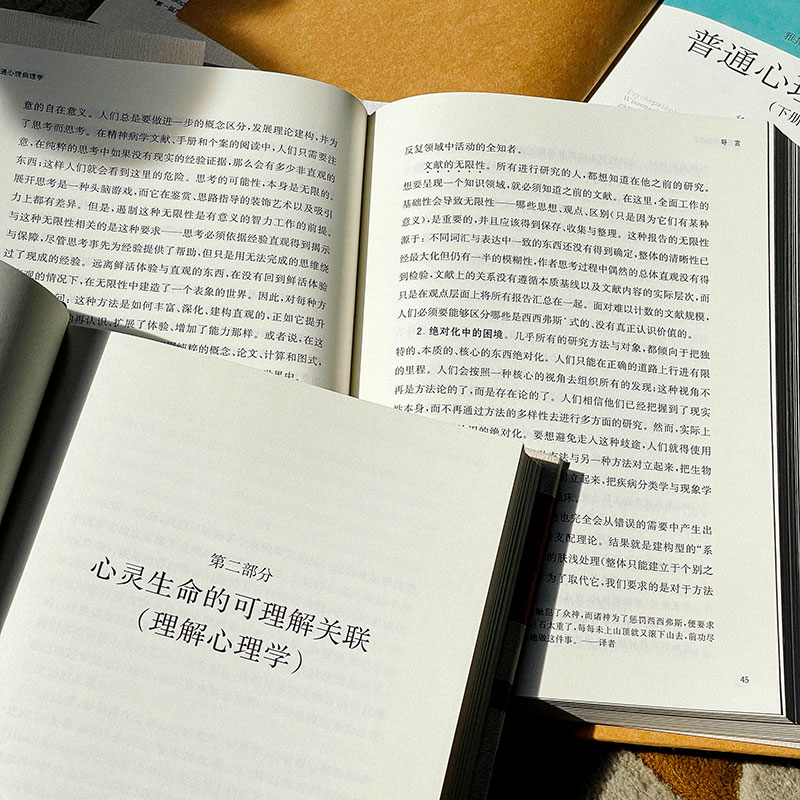 通心理病理学
意的自在意义。人们总是要做进一步的概念区分，发展理论建构，并为
了思考而思考。在精神病学文献、手册和个案的阅读中，人们只需要注
意，在纯粹的思考中如果没有现实的经验证据，那么会有多少非直观的
东西；这样人们就会看到这里的危险。思考的可能性，本身是无限的。
展开思考是一种头脑游戏，而它在鉴赏、思路指导的装饰艺术以及吸引
力上都有差异。但是，遏制这种无限性是有意义的智力工作的前提。
与这种无限性相关的是这种要求——思考必须依据经验直观得到揭示
与保障，尽管思考事先为经验提供了帮助，但只是用无法完成的思维绕
过了现成的经验。远离鲜活体验与直观的东西，在没有回到鲜活体验
观的情况下，在无限性中建造了一个表象的世界。因此，对每种方
问：这种方法是如何丰富、深化、建构直观的，正如它提升
再认识、扩展了体验、增加了能力那样。或者说，在这
纯粹的概念、论文、计算和图式，
世界中。
导 言
反复领域中活动的全知者。
文献的无限性。所有进行研究的人，都想知道在他之前的研究。
想要呈现一个知识领域，就必须知道之前的文献。在这里，全面工作的
基础性会导致无限性——哪些思想、观点、区别（只是因为它们有某种
意义），是重要的，并且应该得到保存、收集与整理。这种报告的无限性
源于：不同词汇与表达中一致的东西还没有得到确定，整体的清晰性已
经最大化但仍有一半的模糊性，作者思考过程中偶然的总体直观没有得
到检验，文献上的关系没有遵循本质基线以及文献内容的实际层次，而
只是在观点层面上将所有报告汇总在一起。面对难以计数的文献规模，
人们必须要能够区分哪些是西西弗斯*式的、没有真正认识价值的。
2. 绝对化中的困境。几乎所有的研究方法与对象，都倾向于把独
特的、本质的、核心的东西绝对化。人们只能在正确的道路上行进有限
的里程。人们会按照一种核心的视角去组织所有的发现；这种视角不
再是方法论的了，而是存在论的了。人们相信他们已经把握到了现实
性本身，而不再通过方法的多样性去进行多方面的研究。然而，实际上
识的绝对化。要想避免走入这种歧途，人们就得使用
方法与另一种方法对立起来，把生物
立起来，把疾病分类学与现象学
床。
也完全会从错误的需要中产生出
支配理论。结果就是建构型的“系
的肤浅处理（整体只能建立于个别之
为了取代它，我们要求的是对于方法
触犯了众神，而诸神为了惩罚西西弗斯，便要求
巨石太重了，每每未上山顶就又滚下山去，前功尽
地做这件事。——译者
45
第二部分
心灵生命的可理解关联
（理解心理学）
普通心理
（下册